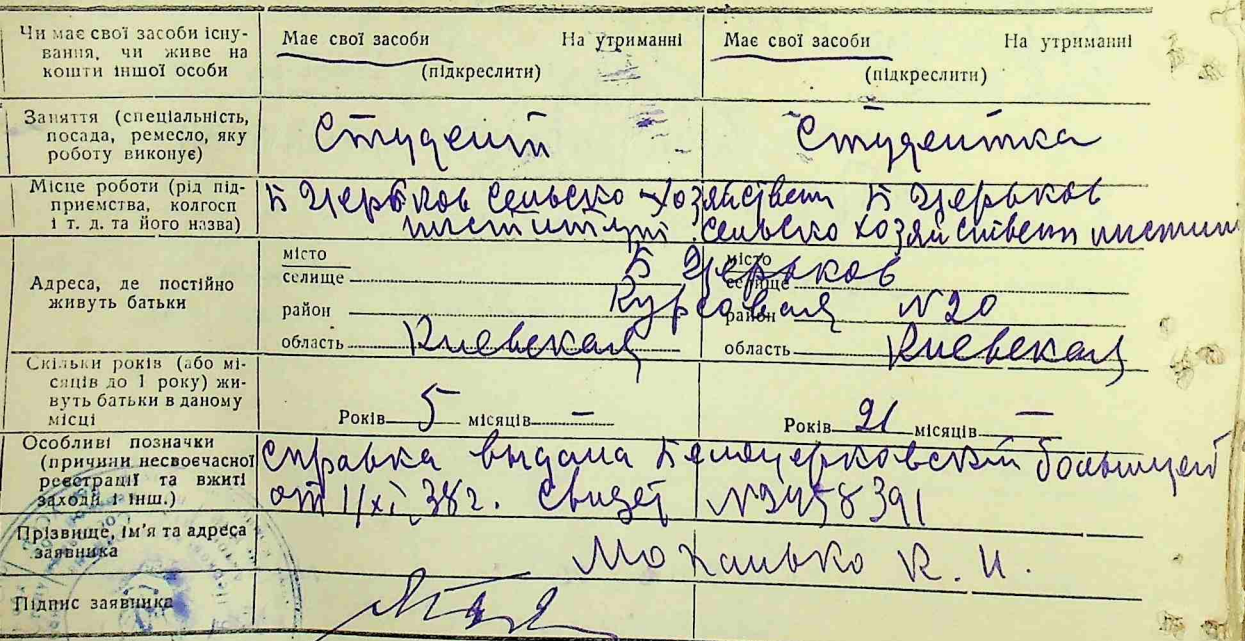 Чи має свої засоби існу-
вання, чи живе на
кошти іншої особи
Має свої засоби На утриманні
(підкреслити)
Має свої засоби На утриманні
(підкреслити)
Заняття (спеціальність,
посада, ремесло, яку
роботу виконує)
Студент
Студентка
Місце роботи (рід під-
приємства, колгосп
і т. д. та його назва)
Б Церьков Сельско-хозяйствен
институт
Б Церьков
Сельско хозяйствен институт
Адреса, де постійно
живуть батьки
місто
селище
район
область Киевская
місто Б Церьков
селище
район Курсовая №20
область Киевская
Скільки років (або мі-
сяців до 1 року) жи-
вуть батьки в даному
місці
Років 5 місяців —
Років 21 місяців —
Особливі позначки
(причини несвоєчасної
реєстрації та вжиті
заходи і інш.)
Справка выдана Белоцерковской больницей
от 11/XI 38 г. Свидет №2458391
Прізвище, ім'я та адреса
заявника
К. И.
Підпис заявника